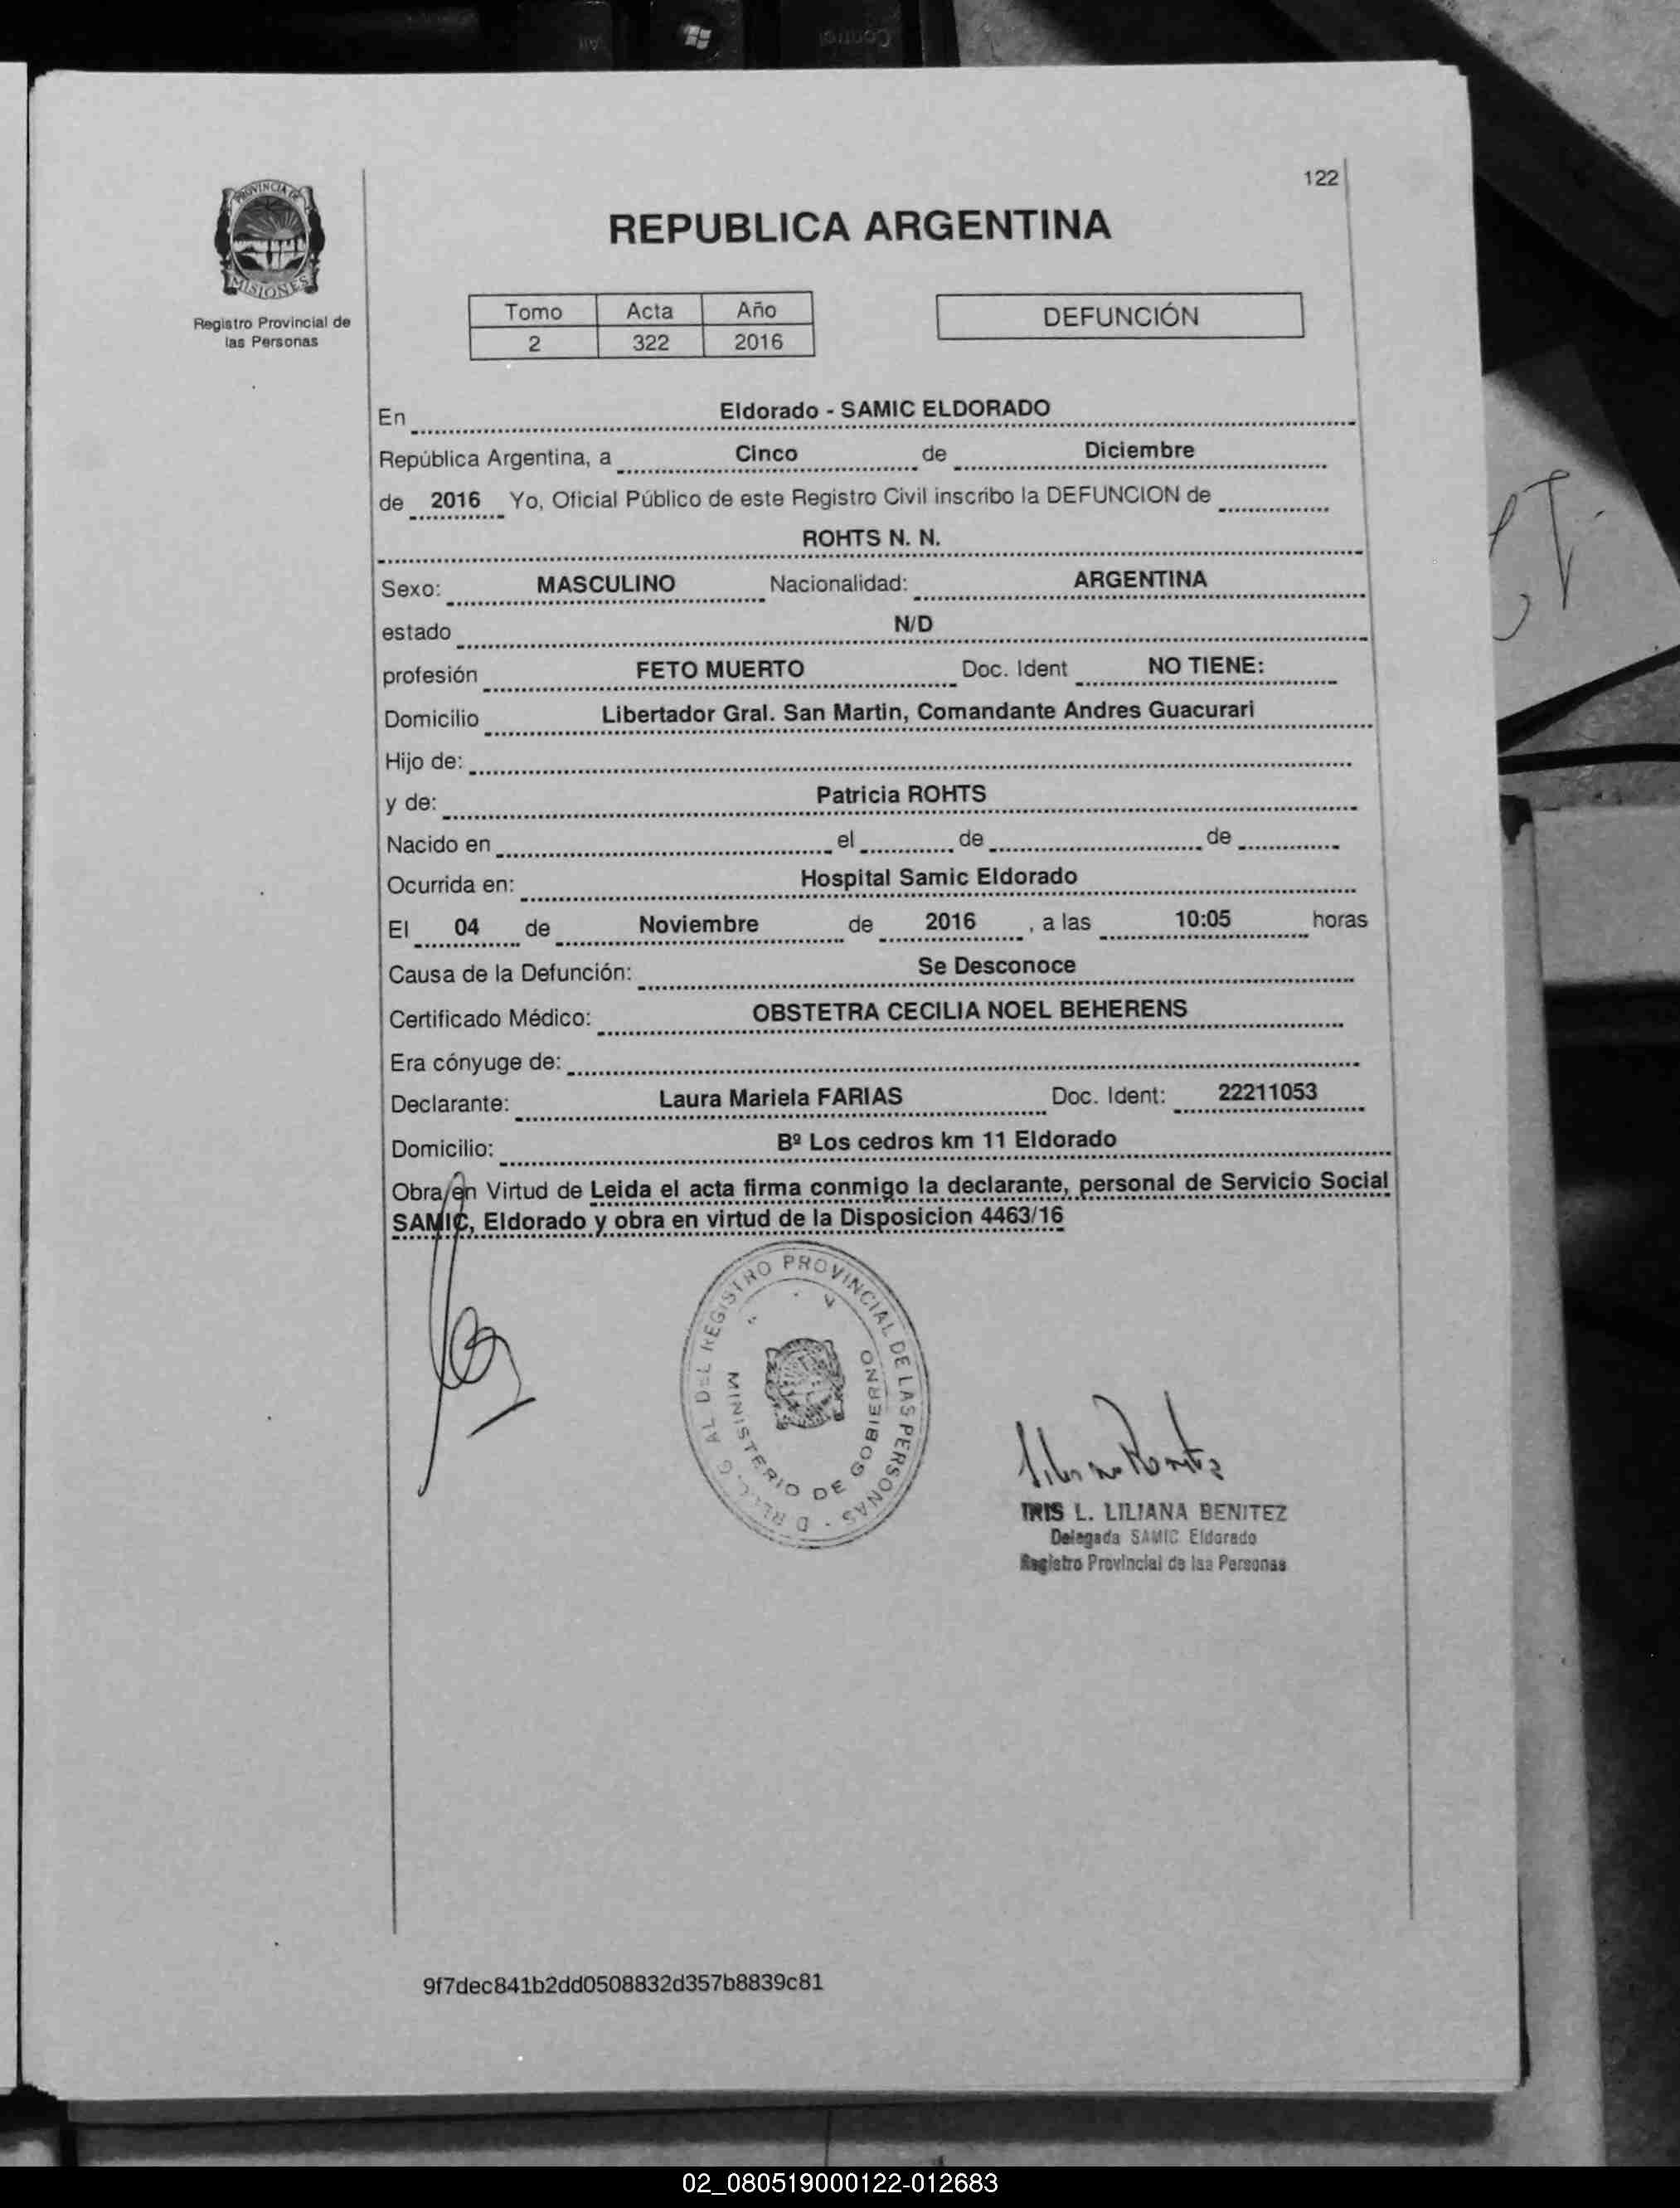 Alt
Control
122
PROVINCIA DE
MISIONES
Registro Provincial de
las Personas
REPUBLICA ARGENTINA
Tomo Acta Año
2 322 2016
DEFUNCIÓN
En Eldorado - SAMIC ELDORADO
República Argentina, a Cinco de Diciembre
de 2016 Yo, Oficial Público de este Registro Civil inscribo la DEFUNCION de
ROHTS N. N.
Sexo: MASCULINO Nacionalidad: ARGENTINA
estado N/D
profesión FETO MUERTO Doc. Ident NO TIENE:
Domicilio Libertador Gral. San Martin, Comandante Andres Guacurari
Hijo de:
y de: Patricia ROHTS
Nacido en el de de
Ocurrida en: Hospital Samic Eldorado
El 04 de Noviembre de 2016 , a las 10:05 horas
Causa de la Defunción: Se Desconoce
Certificado Médico: OBSTETRA CECILIA NOEL BEHERENS
Era cónyuge de:
Declarante: Laura Mariela FARIAS Doc. Ident: 22211053
Domicilio: Bº Los cedros km 11 Eldorado
Obra en Virtud de Leida el acta firma conmigo la declarante, personal de Servicio Social
SAMIC, Eldorado y obra en virtud de la Disposicion 4463/16
DEL REGISTRO PROVINCIAL DE LAS PERSONAS
MINISTERIO DE GOBIERNO
IRIS L. LILIANA BENITEZ
Delegada SAMIC Eldorado
Registro Provincial de las Personas
9f7dec841b2dd0508832d357b8839c81
02_080519000122-012683